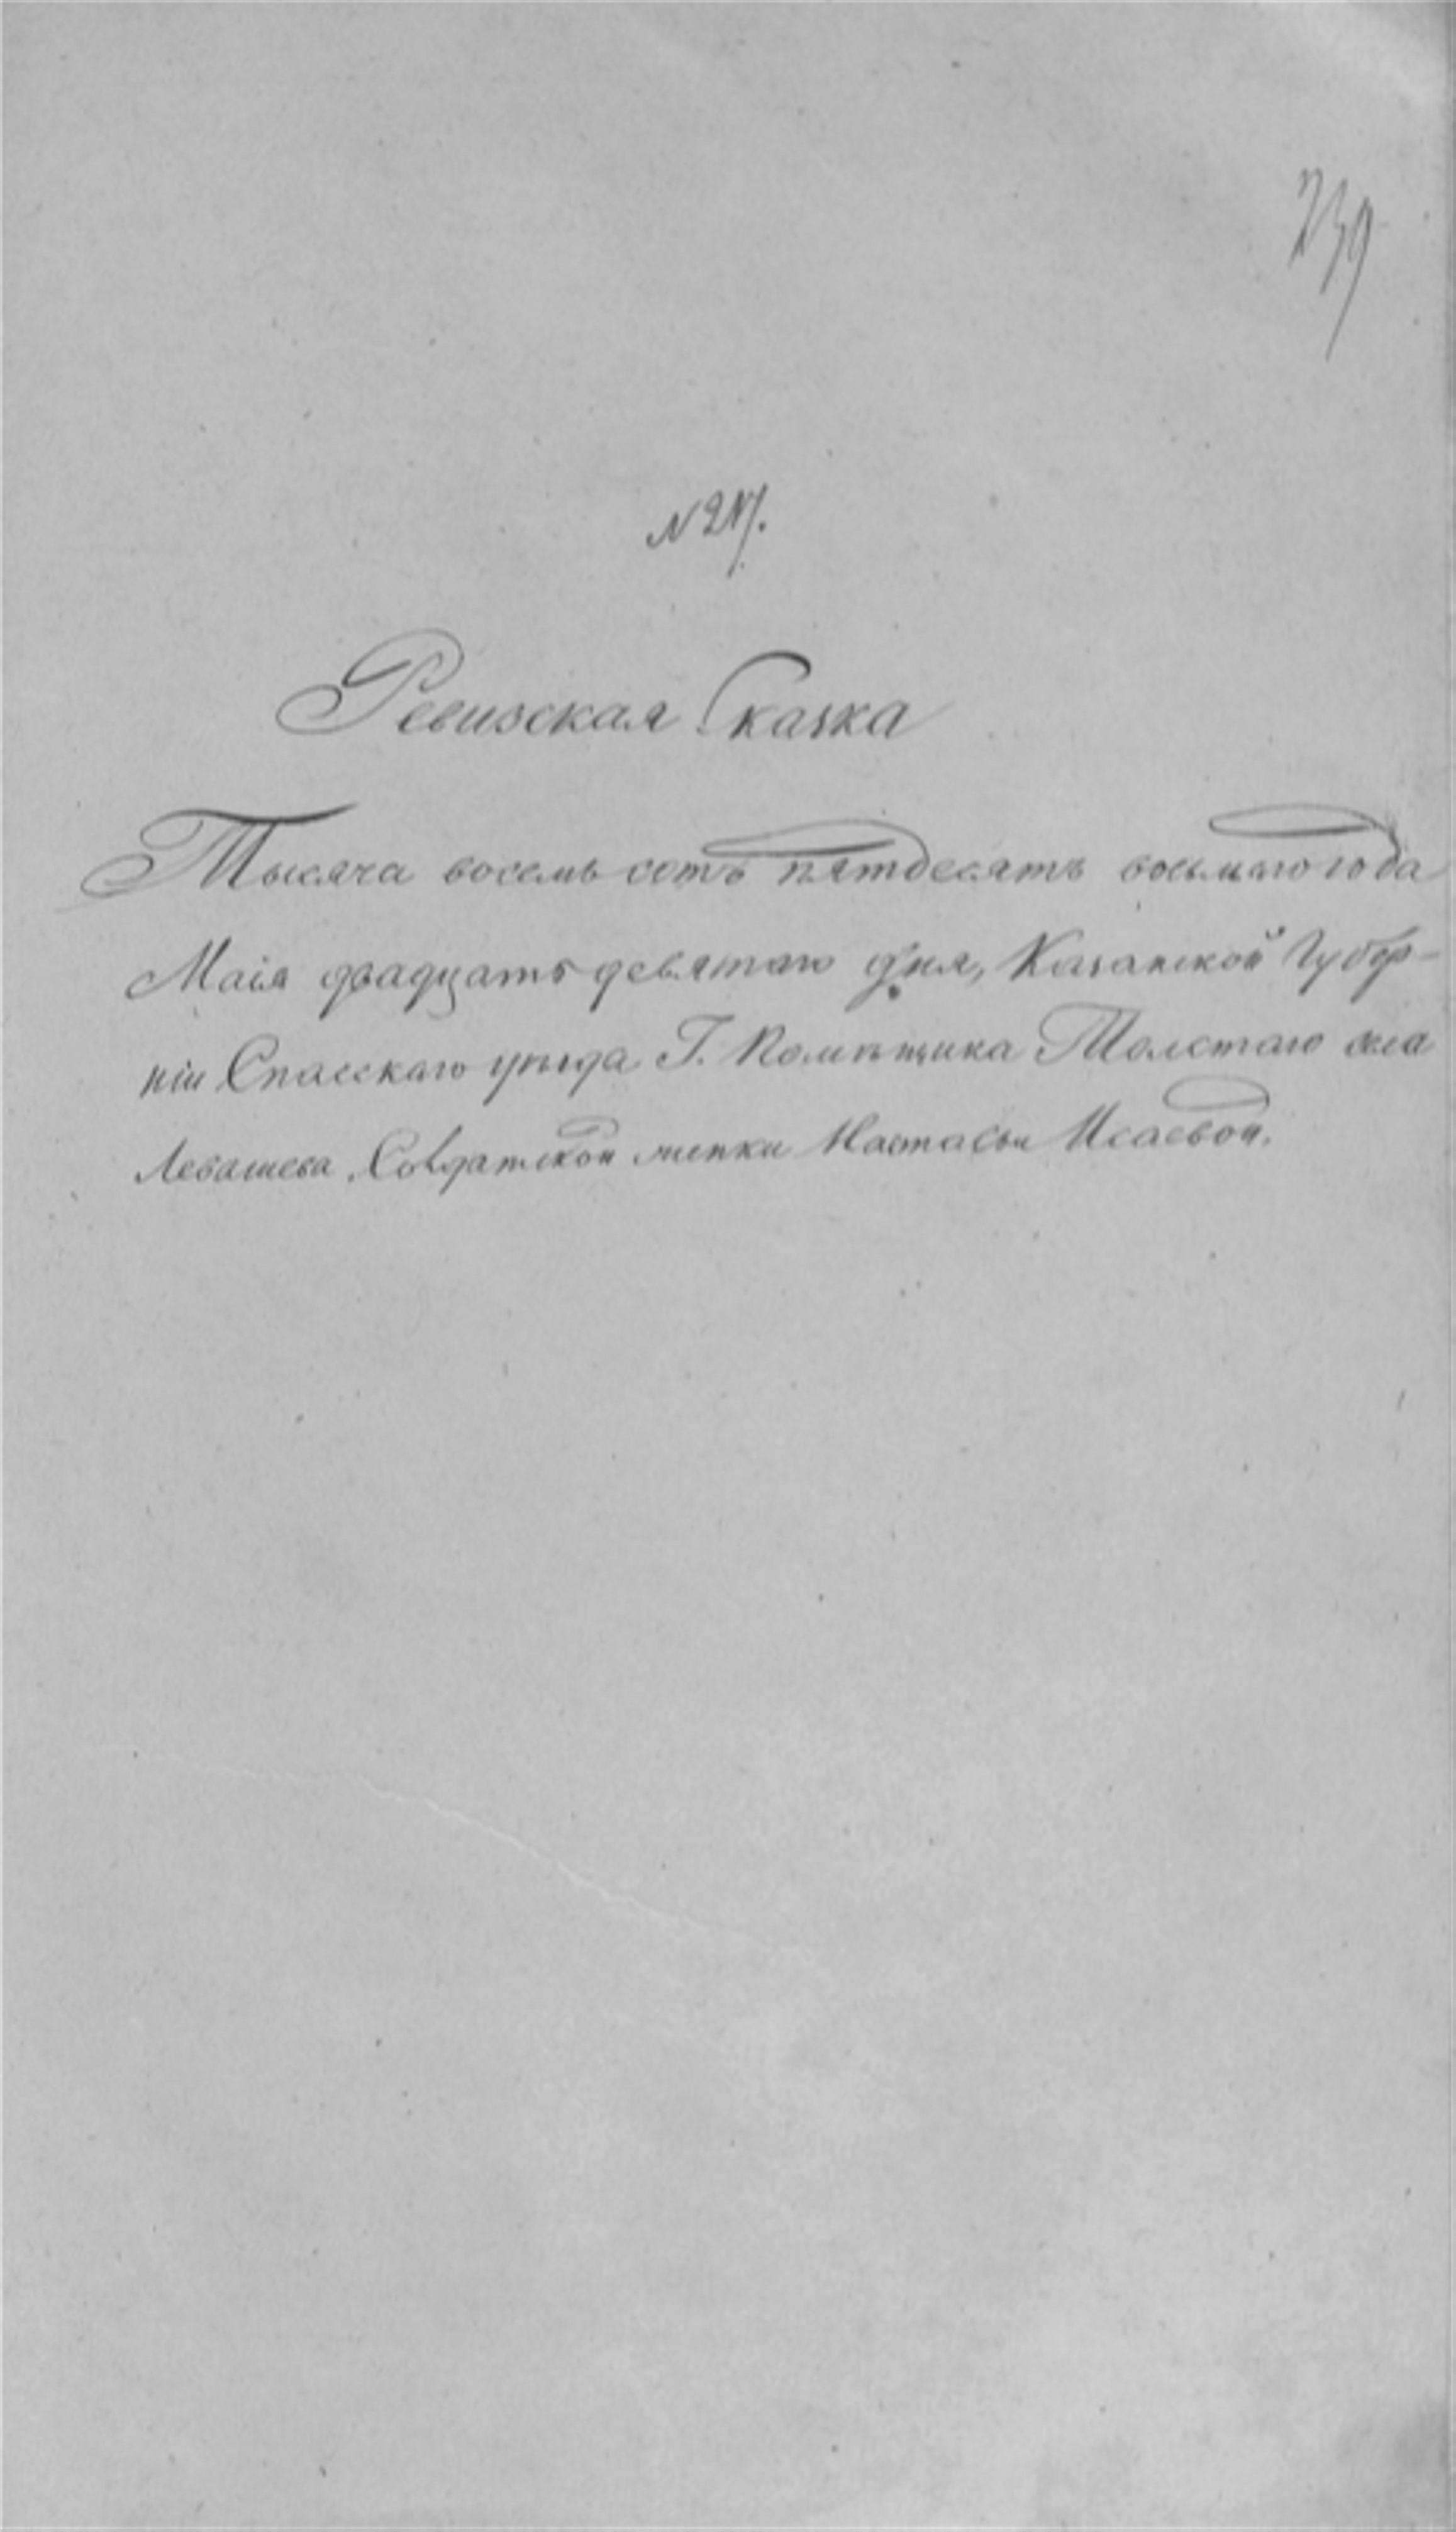 239
№ 217.
Ревизская Сказка
Тысяча восемь сотъ пятдесятъ восьмаго года
Маія двадцать девятаго дня, Казанской Губер-
ніи Спасскаго уѣзда Г. Помѣщика Толстаго села
Левашева, Солдатской женки Настасьи Исаевой.